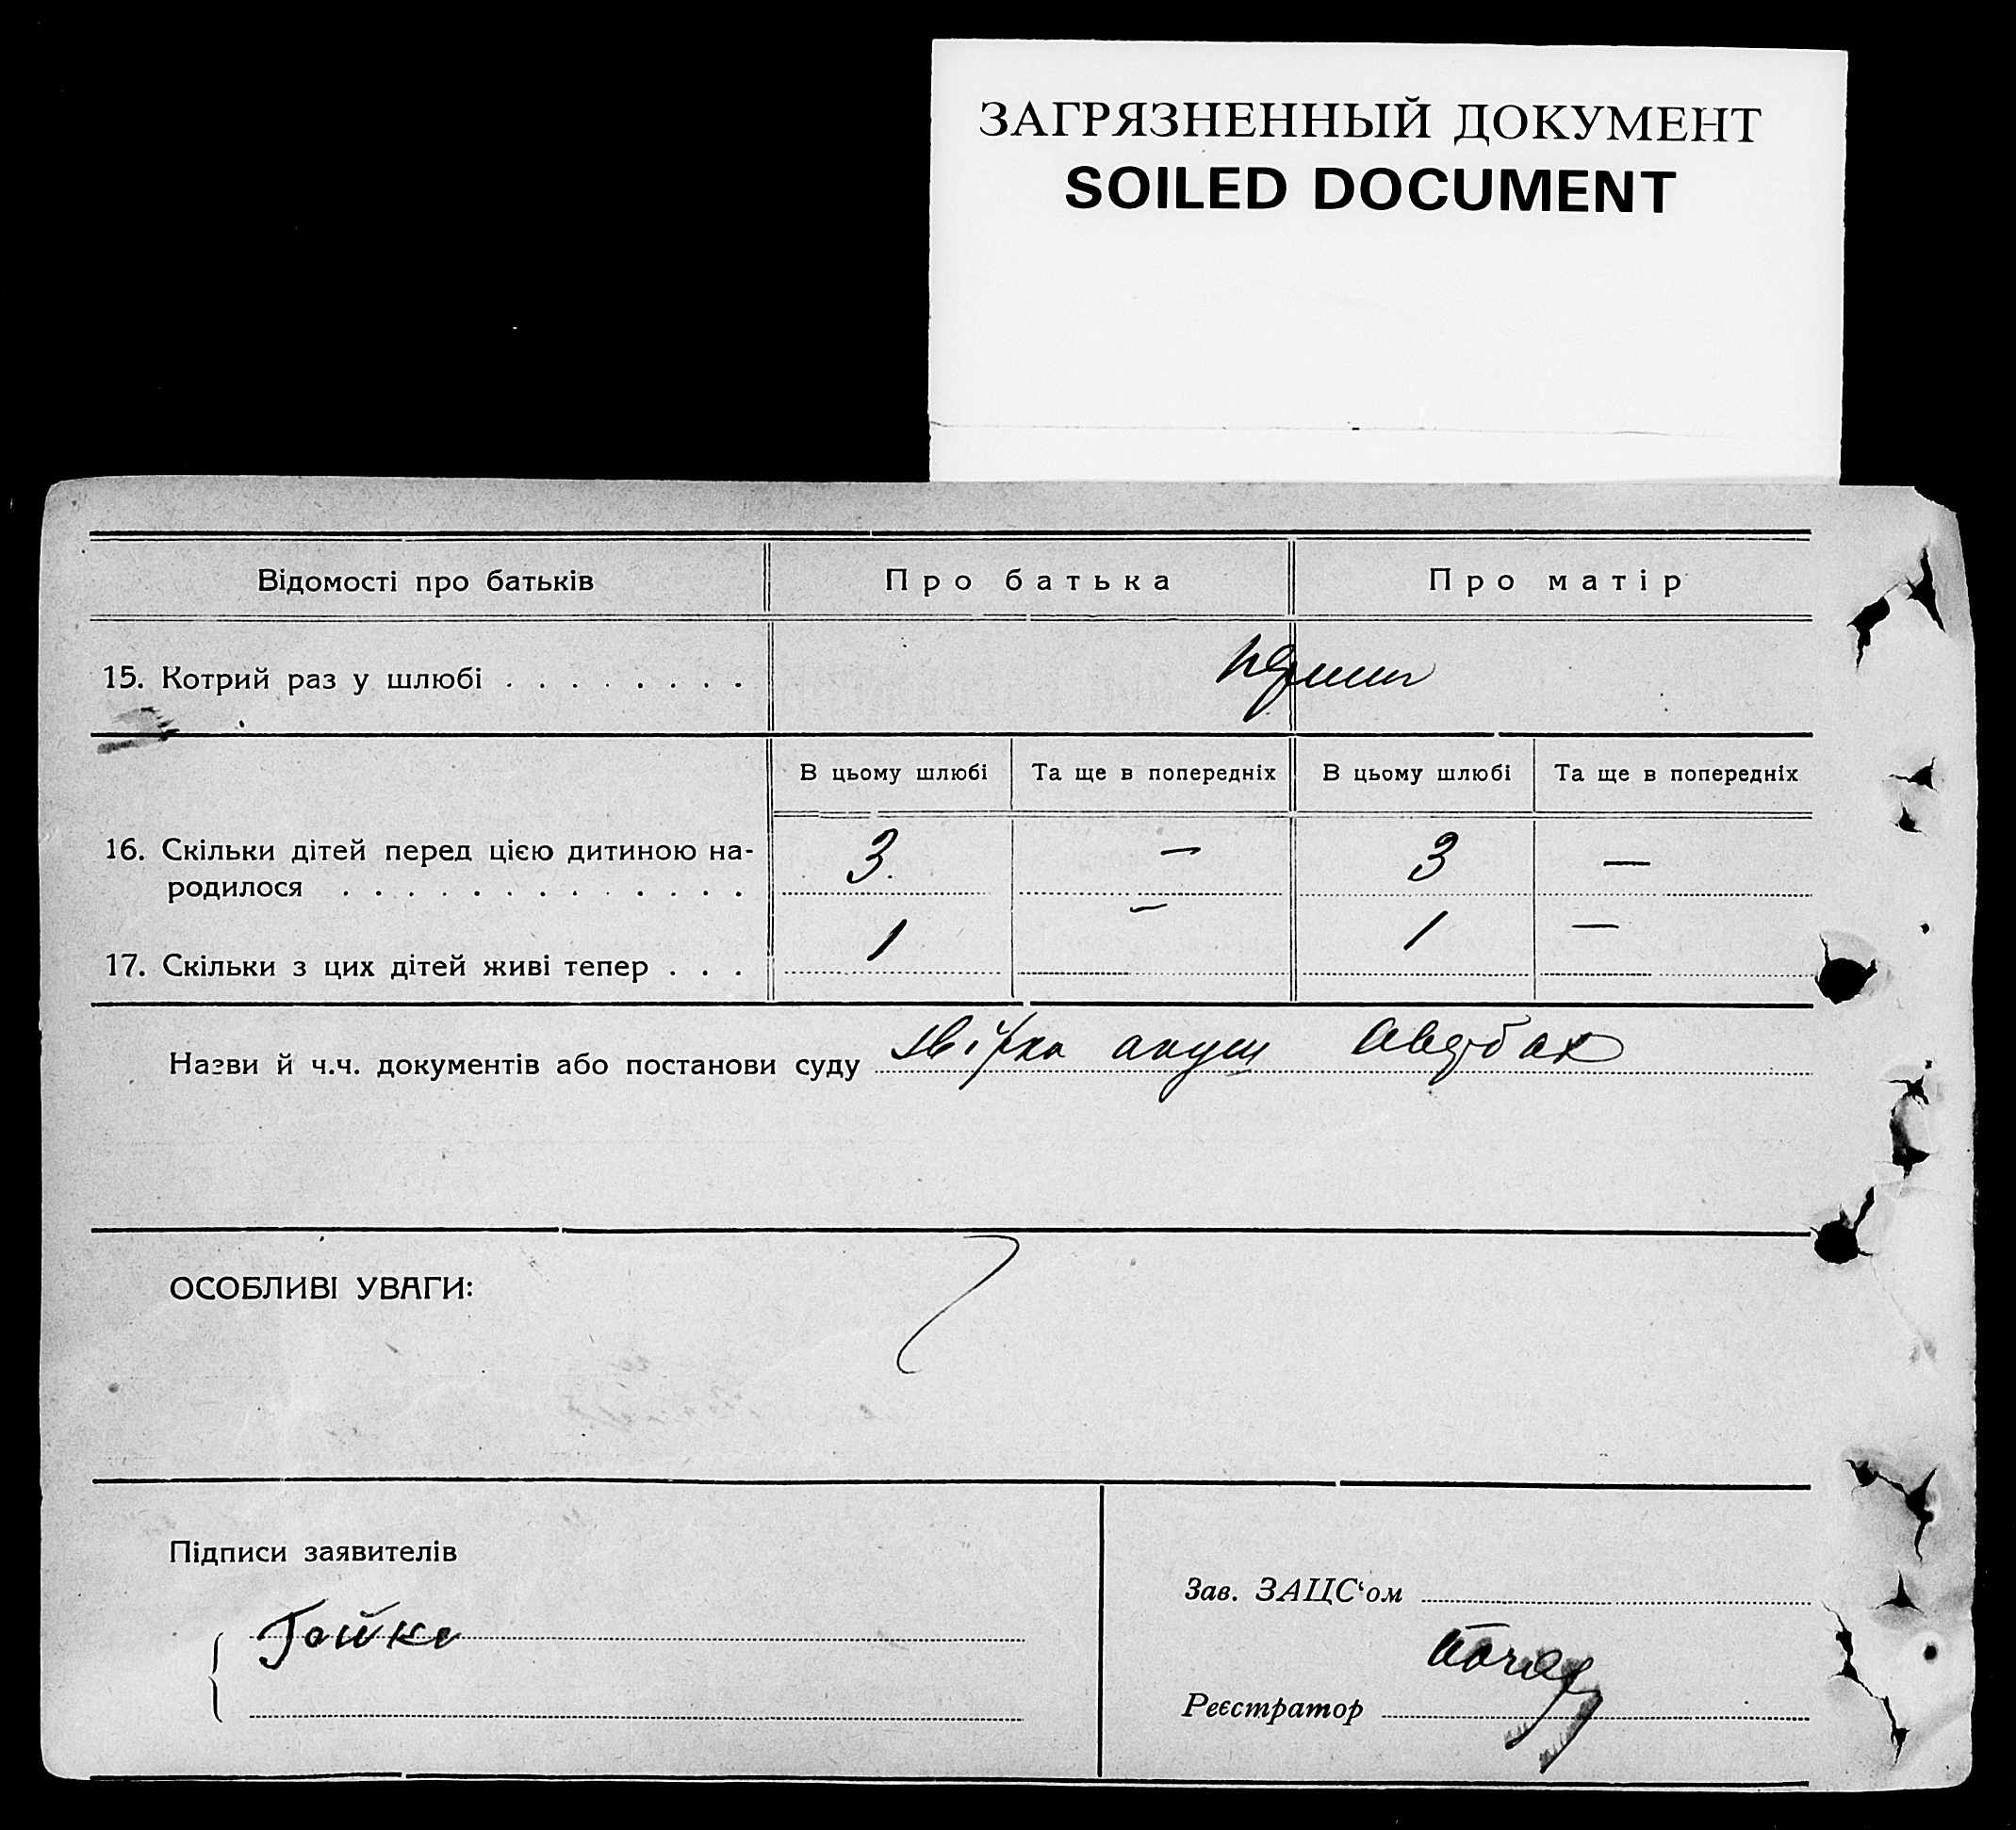 ЗАГРЯЗНЕННЫЙ ДОКУМЕНТ
SOILED DOCUMENT
Відомості про батьків Про батька Про матір
15. Котрий раз у шлюбі . . . . . . . .
В цьому шлюбі Та ще в попередніх В цьому шлюбі Та ще в попередніх
16. Скільки дітей перед цією дитиною на-
родилося . . . . . . . . . . . . . 3. — 3 —
17. Скільки з цих дітей живі тепер . . . 1 — 1 —
Назви й ч.ч. документів або постанови суду
ОСОБЛИВІ УВАГИ:
Підписи заявителів
Зав. ЗАЦС‘ом
Гойко
Реєстратор